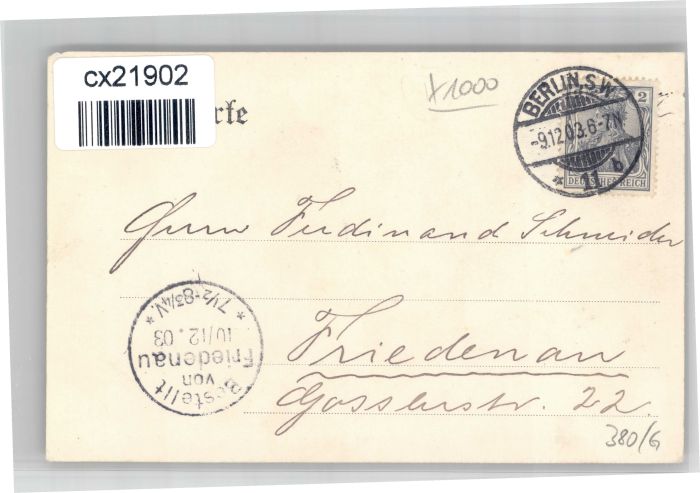 cx21902
rte
*1000
BERLIN S.W.
-9.12.03.6-7N.
* 11 b
2
DEUTSCHES REICH
Herrn Ferdinand Schneider
Friedenau
Gosslerstr. 22.
Bestellt
von
Friedenau
10/12.03
* 7½-8¾V. *
380/G